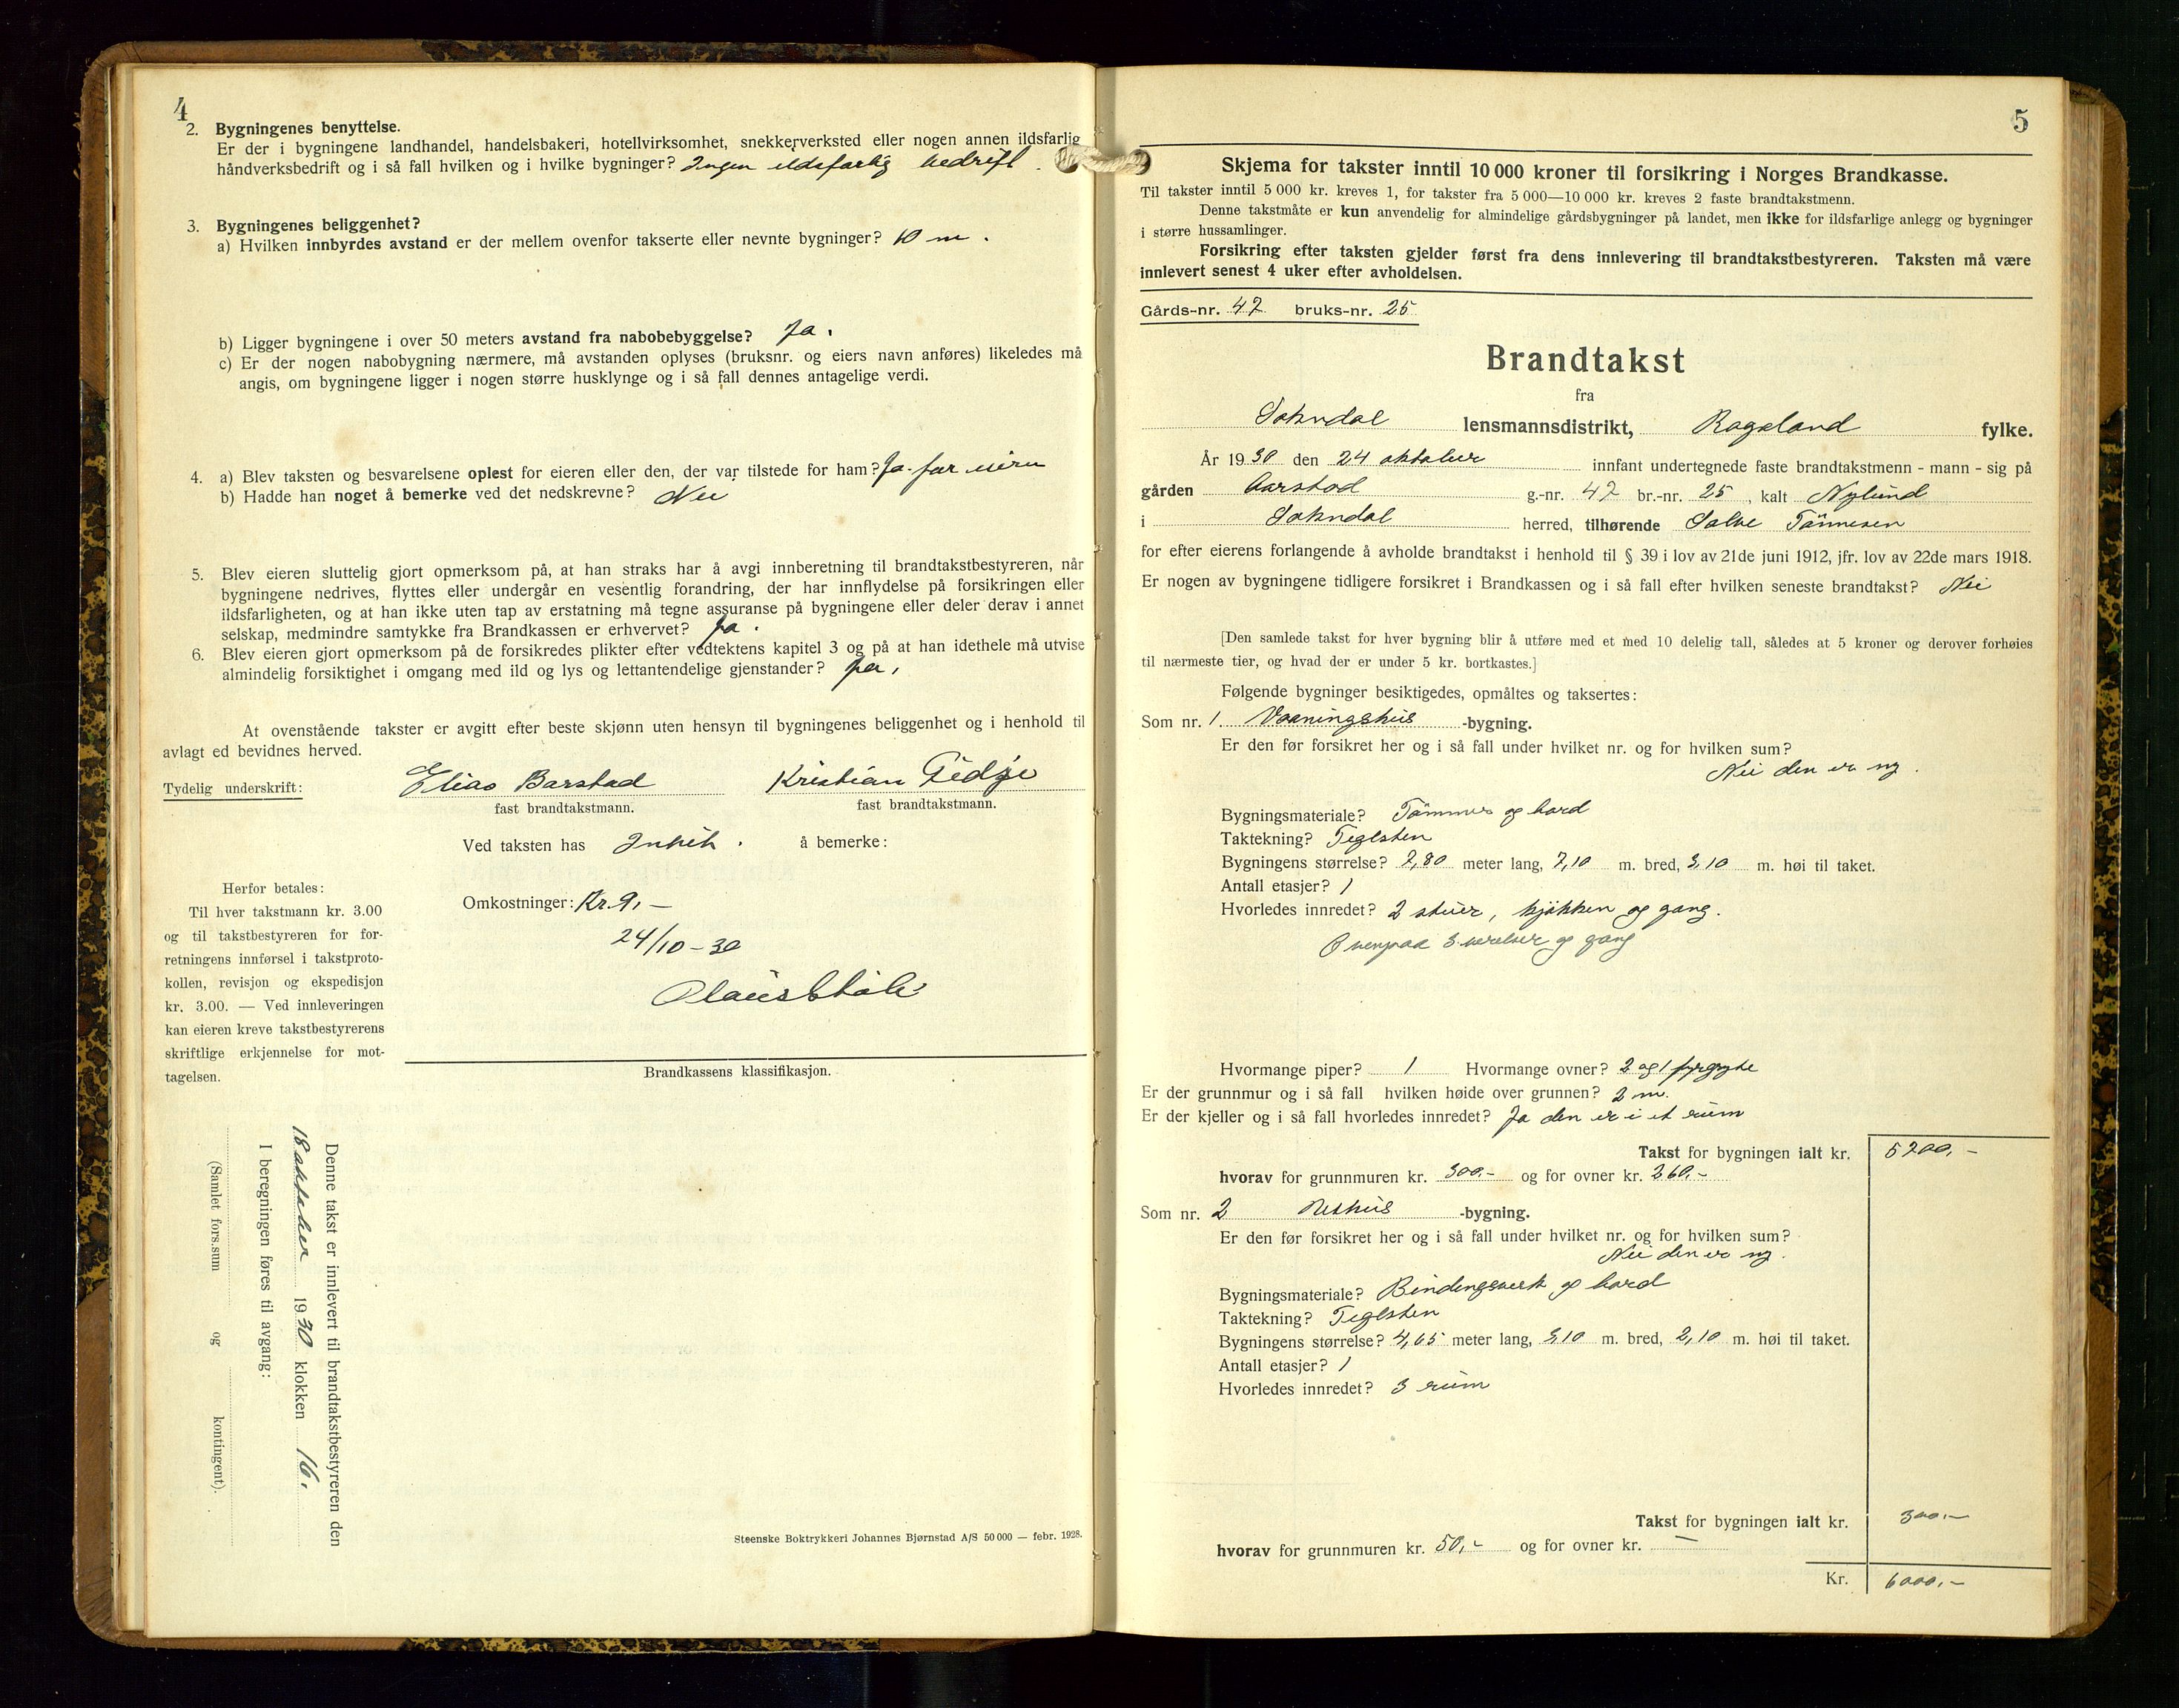 4
2. Bygningenes benyttelse.
Er der i bygningene landhandel, handelsbakeri, hotellvirksomhet, snekkerverksted eller nogen annen ildsfarlig
håndverksbedrift og i så fall hvilken og i hvilke bygninger? Ingen ildsfarlig bedrift.
3. Bygningenes beliggenhet?
a) Hvilken innbyrdes avstand er der mellem ovenfor takserte eller nevnte bygninger? 10 m.
b) Ligger bygningene i over 50 meters avstand fra nabobebyggelse? Ja.
c) Er der nogen nabobygning nærmere, må avstanden oplyses (bruksnr. og eiers navn anføres) likeledes må
angis, om bygningene ligger i nogen større husklynge og i så fall dennes antagelige verdi.
4. a) Blev taksten og besvarelsene oplest for eieren eller den, der var tilstede for ham? Ja for eieren
b) Hadde han noget å bemerke ved det nedskrevne? Nei
5. Blev eieren sluttelig gjort opmerksom på, at han straks har å avgi innberetning til brandtakstbestyreren, når
bygningene nedrives, flyttes eller undergår en vesentlig forandring, der har innflydelse på forsikringen eller
ildsfarligheten, og at han ikke uten tap av erstatning må tegne assuranse på bygningene eller deler derav i annet
selskap, medmindre samtykke fra Brandkassen er erhvervet? Ja.
6. Blev eieren gjort opmerksom på de forsikredes plikter efter vedtektens kapitel 3 og på at han idethele må utvise
almindelig forsiktighet i omgang med ild og lys og lettantendelige gjenstander? Ja,
At ovenstående takster er avgitt efter beste skjønn uten hensyn til bygningenes beliggenhet og i henhold til
avlagt ed bevidnes herved.
Tydelig underskrift: Elias Barstad Kristian Tedje
fast brandtakstmann. fast brandtakstmann.
Ved taksten has Intet. å bemerke:
Omkostninger: Kr. 9,-
24/10-30
Herfor betales:
Til hver takstmann kr. 3.00
og til takstbestyreren for for-
retningens innførsel i takstproto-
kollen, revisjon og ekspedisjon
kr. 3.00. — Ved innleveringen
kan eieren kreve takstbestyrerens
skriftlige erkjennelse for mot-
tagelsen.
Brandkassens klassifikasjon.
Denne takst er innlevert til brandtakstbestyreren den
18 oktober 1930 klokken 16.
I beregningen føres til avgang:
(Samlet fors.sum og kontingent).
Steenske Boktrykkeri Johannes Bjørnstad A/S 50 000 — febr. 1928.
5
Skjema for takster inntil 10 000 kroner til forsikring i Norges Brandkasse.
Til takster inntil 5 000 kr. kreves 1, for takster fra 5 000—10 000 kr. kreves 2 faste brandtakstmenn.
Denne takstmåte er kun anvendelig for almindelige gårdsbygninger på landet, men ikke for ildsfarlige anlegg og bygninger
i større hussamlinger.
Forsikring efter taksten gjelder først fra dens innlevering til brandtakstbestyreren. Taksten må være
innlevert senest 4 uker efter avholdelsen.
Gårds-nr. 47 bruks-nr. 25
Brandtakst
fra
Sokndal lensmannsdistrikt, Rogaland fylke.
År 1930 den 24 oktober innfant undertegnede faste brandtakstmenn - mann - sig på
gården Aarstad g.-nr. 47 br.-nr. 25, kalt Nylund
i Sokndal herred, tilhørende Salve Tönnesen
for efter eierens forlangende å avholde brandtakst i henhold til § 39 i lov av 21de juni 1912, jfr. lov av 22de mars 1918.
Er nogen av bygningene tidligere forsikret i Brandkassen og i så fall efter hvilken seneste brandtakst? Nei
[Den samlede takst for hver bygning blir å utføre med et med 10 delelig tall, således at 5 kroner og derover forhøies
til nærmeste tier, og hvad der er under 5 kr. bortkastes.]
Følgende bygninger besiktigedes, opmåltes og taksertes:
Som nr. 1. Vaaningshus -bygning.
Er den før forsikret her og i så fall under hvilket nr. og for hvilken sum?
Nei den er ny.
Bygningsmateriale? Tömmer og bord
Taktekning? Teglsten
Bygningens størrelse? 7,80 meter lang, 7,10 m. bred, 3,10 m. høi til taket.
Antall etasjer? 1
Hvorledes innredet? 2 stuer, kjökken og gang.
Ovenpaa 3 værelser og gang
Hvormange piper? 1 Hvormange ovner? 2 og 1 fyrgryte
Er der grunnmur og i så fall hvilken høide over grunnen? 2 m.
Er der kjeller og i så fall hvorledes innredet? Ja den er i et rum
Takst for bygningen ialt kr. 5700,-
hvorav for grunnmuren kr. 300,- og for ovner kr. 260,-
Som nr. 2 Uthus -bygning.
Er den før forsikret her og i så fall under hvilket nr. og for hvilken sum?
Nei den er ny.
Bygningsmateriale? Bindingsverk og bord
Taktekning? Teglsten
Bygningens størrelse? 4,65 meter lang, 3,10 m. bred, 2,10 m. høi til taket.
Antall etasjer? 1
Hvorledes innredet? 3 rum
Takst for bygningen ialt kr. 300,-
hvorav for grunnmuren kr. 50,- og for ovner kr. —
Kr. 6000,-